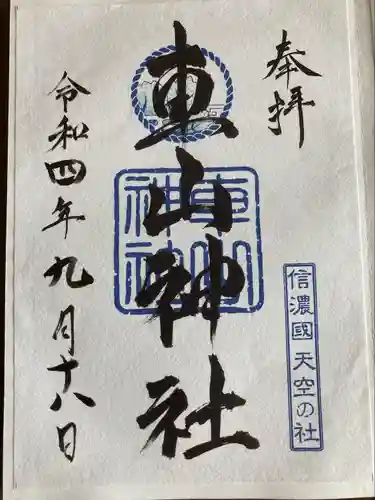 奉拝
信濃國 天空の社
車山神社
車山
神社
令和四年九月十八日